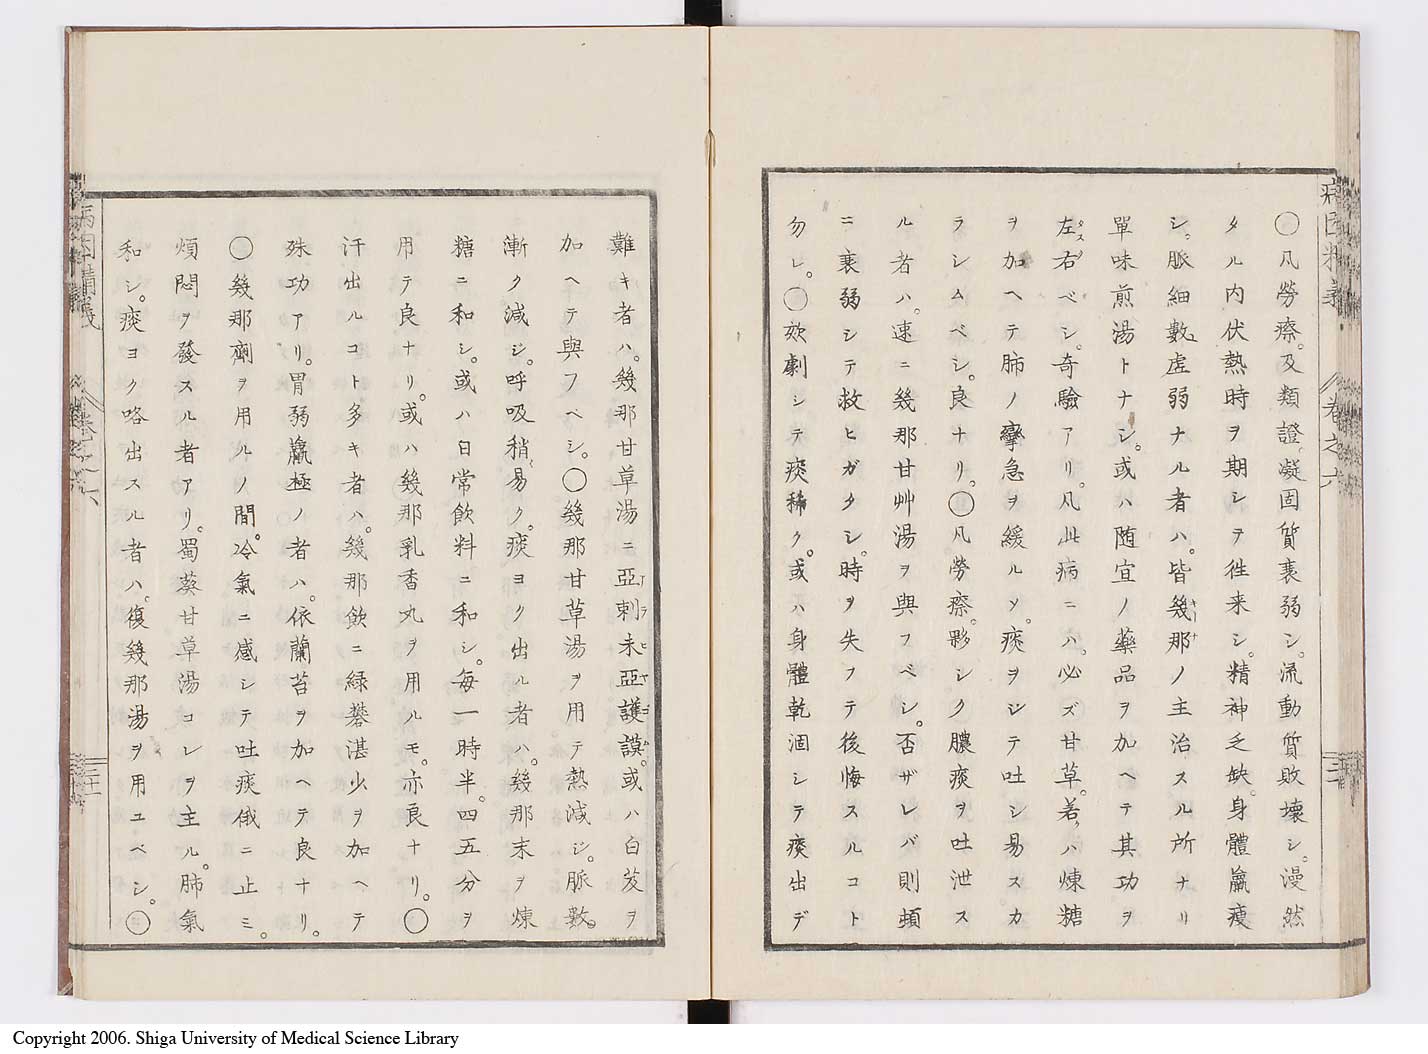 〇凡勞瘵。及類證。凝固質衰弱シ。流動質敗壞シ。漫然
タル内伏熱時ヲ期シテ徃来シ。精神乏缺。身體羸瘦
シ。脈細數虚弱ナル者ハ。皆幾那ノ主治スル所ナリ
單味煎湯トナシ。或ハ随宜ノ藥品ヲ加ヘテ其功ヲ
左右ベシ。奇驗アリ。凡此病ニハ。必ズ甘草。若クハ煉糖
ヲ加ヘテ肺ノ攣急ヲ緩ルメ。痰ヲシテ吐シ易スカ
ラシムベシ。良ナリ。〇凡勞瘵。夥シク膿痰ヲ吐泄ス
ル者ハ。速ニ幾那甘艸湯ヲ與フベシ。否ザレバ則頓
ニ衰弱シテ救ヒガタシ。時ヲ失フテ後悔スルコト
勿レ。〇欬劇シテ痰稀ク。或ハ身體乾涸シテ痰出デ
病因精義 卷之六
難キ者ハ。幾那甘草湯ニ亞剌未亞護謨。或ハ白芨ヲ
加ヘテ與フヘシ。〇幾那甘草湯ヲ用テ熱減ジ。脈數。
漸ク減ジ。呼吸稍易ク。痰ヨク出ル者ハ。幾那末ヲ煉
糖ニ和シ。或ハ日常飲料ニ和シ。毎一時半。四五分ヲ
用テ良ナリ。或ハ幾那乳香丸ヲ用ルモ。亦良ナリ。〇
汗出ルコト多キ者ハ。幾那飲ニ緑礬湛少ヲ加ヘテ
殊功アリ。胃弱羸極ノ者ハ。依蘭苔ヲ加ヘテ良ナリ。
〇幾那劑ヲ用ルノ間。冷氣ニ感シテ吐痰俄ニ止ミ。
煩悶ヲ發スル者アリ。蜀葵甘草湯コレヲ主ル。肺氣
和シ。痰ヨク咯出スル者ハ。復幾那湯ヲ用ユベシ。〇
病因精義 卷之六
Copyright 2006. Shiga University of Medical Science Library